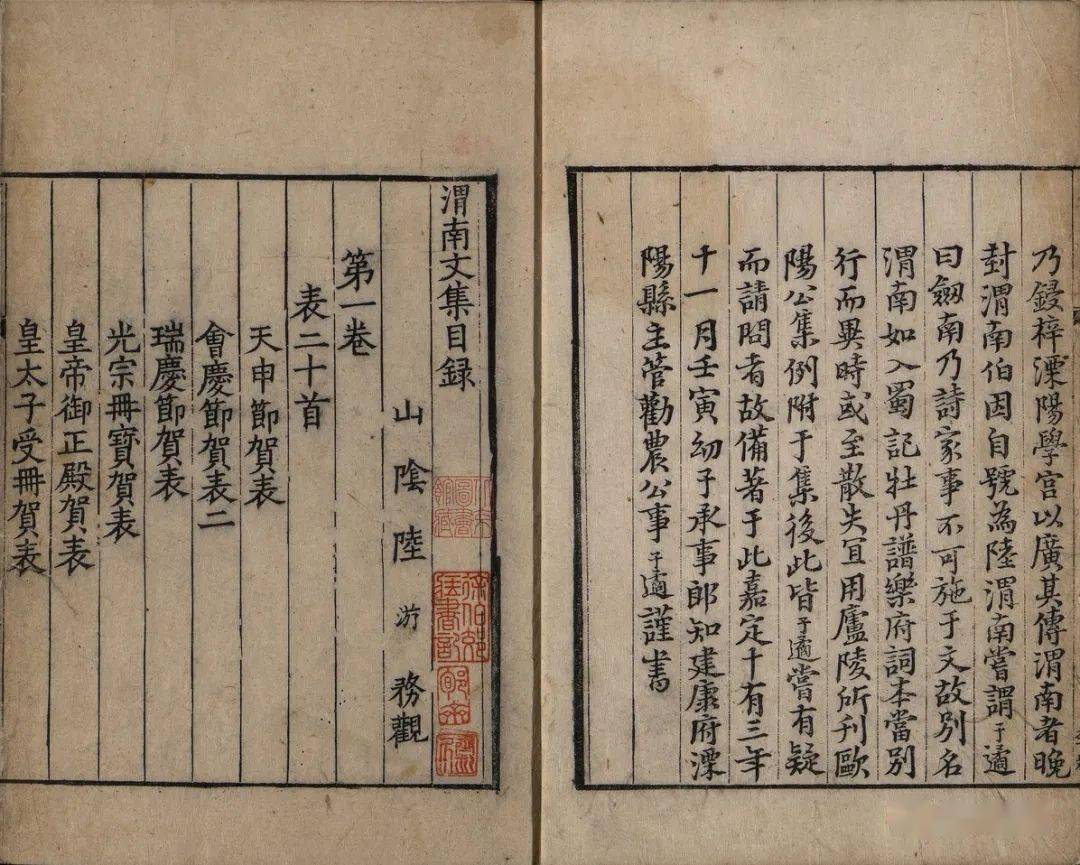 乃鋟梓溧陽學宫以廣其傳渭南者晚
封渭南伯因自號為陸渭南嘗謂子遹
曰劔南乃詩家事不可施于文故别名
渭南如入蜀記牡丹譜樂府詞本當别
行而異時或至散失宜用廬陵所刊歐
陽公集例附于集後此皆子遹嘗有疑
而請問者故備著于此嘉定十有三年
十一月壬寅幼子承事郎知建康府溧
陽縣主管勸農公事子遹謹書
渭南文集目録
山陰陸游務觀
第一卷
表二十首
天申節賀表
會慶節賀表二
瑞慶節賀表
光宗冊寶賀表
皇帝御正殿賀表
皇太子受冊賀表